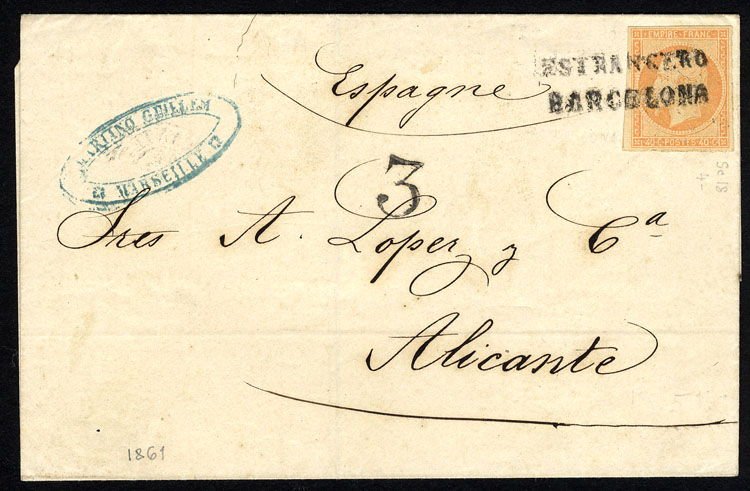 EMPIRE FRANC
ESTRANGERO
BARCELONA
40 C POSTES 40 C
Espagne
MARIANO GUILLEM
MARSEILLE
3
Sres A. Lopez y Cª
Alicante
1861